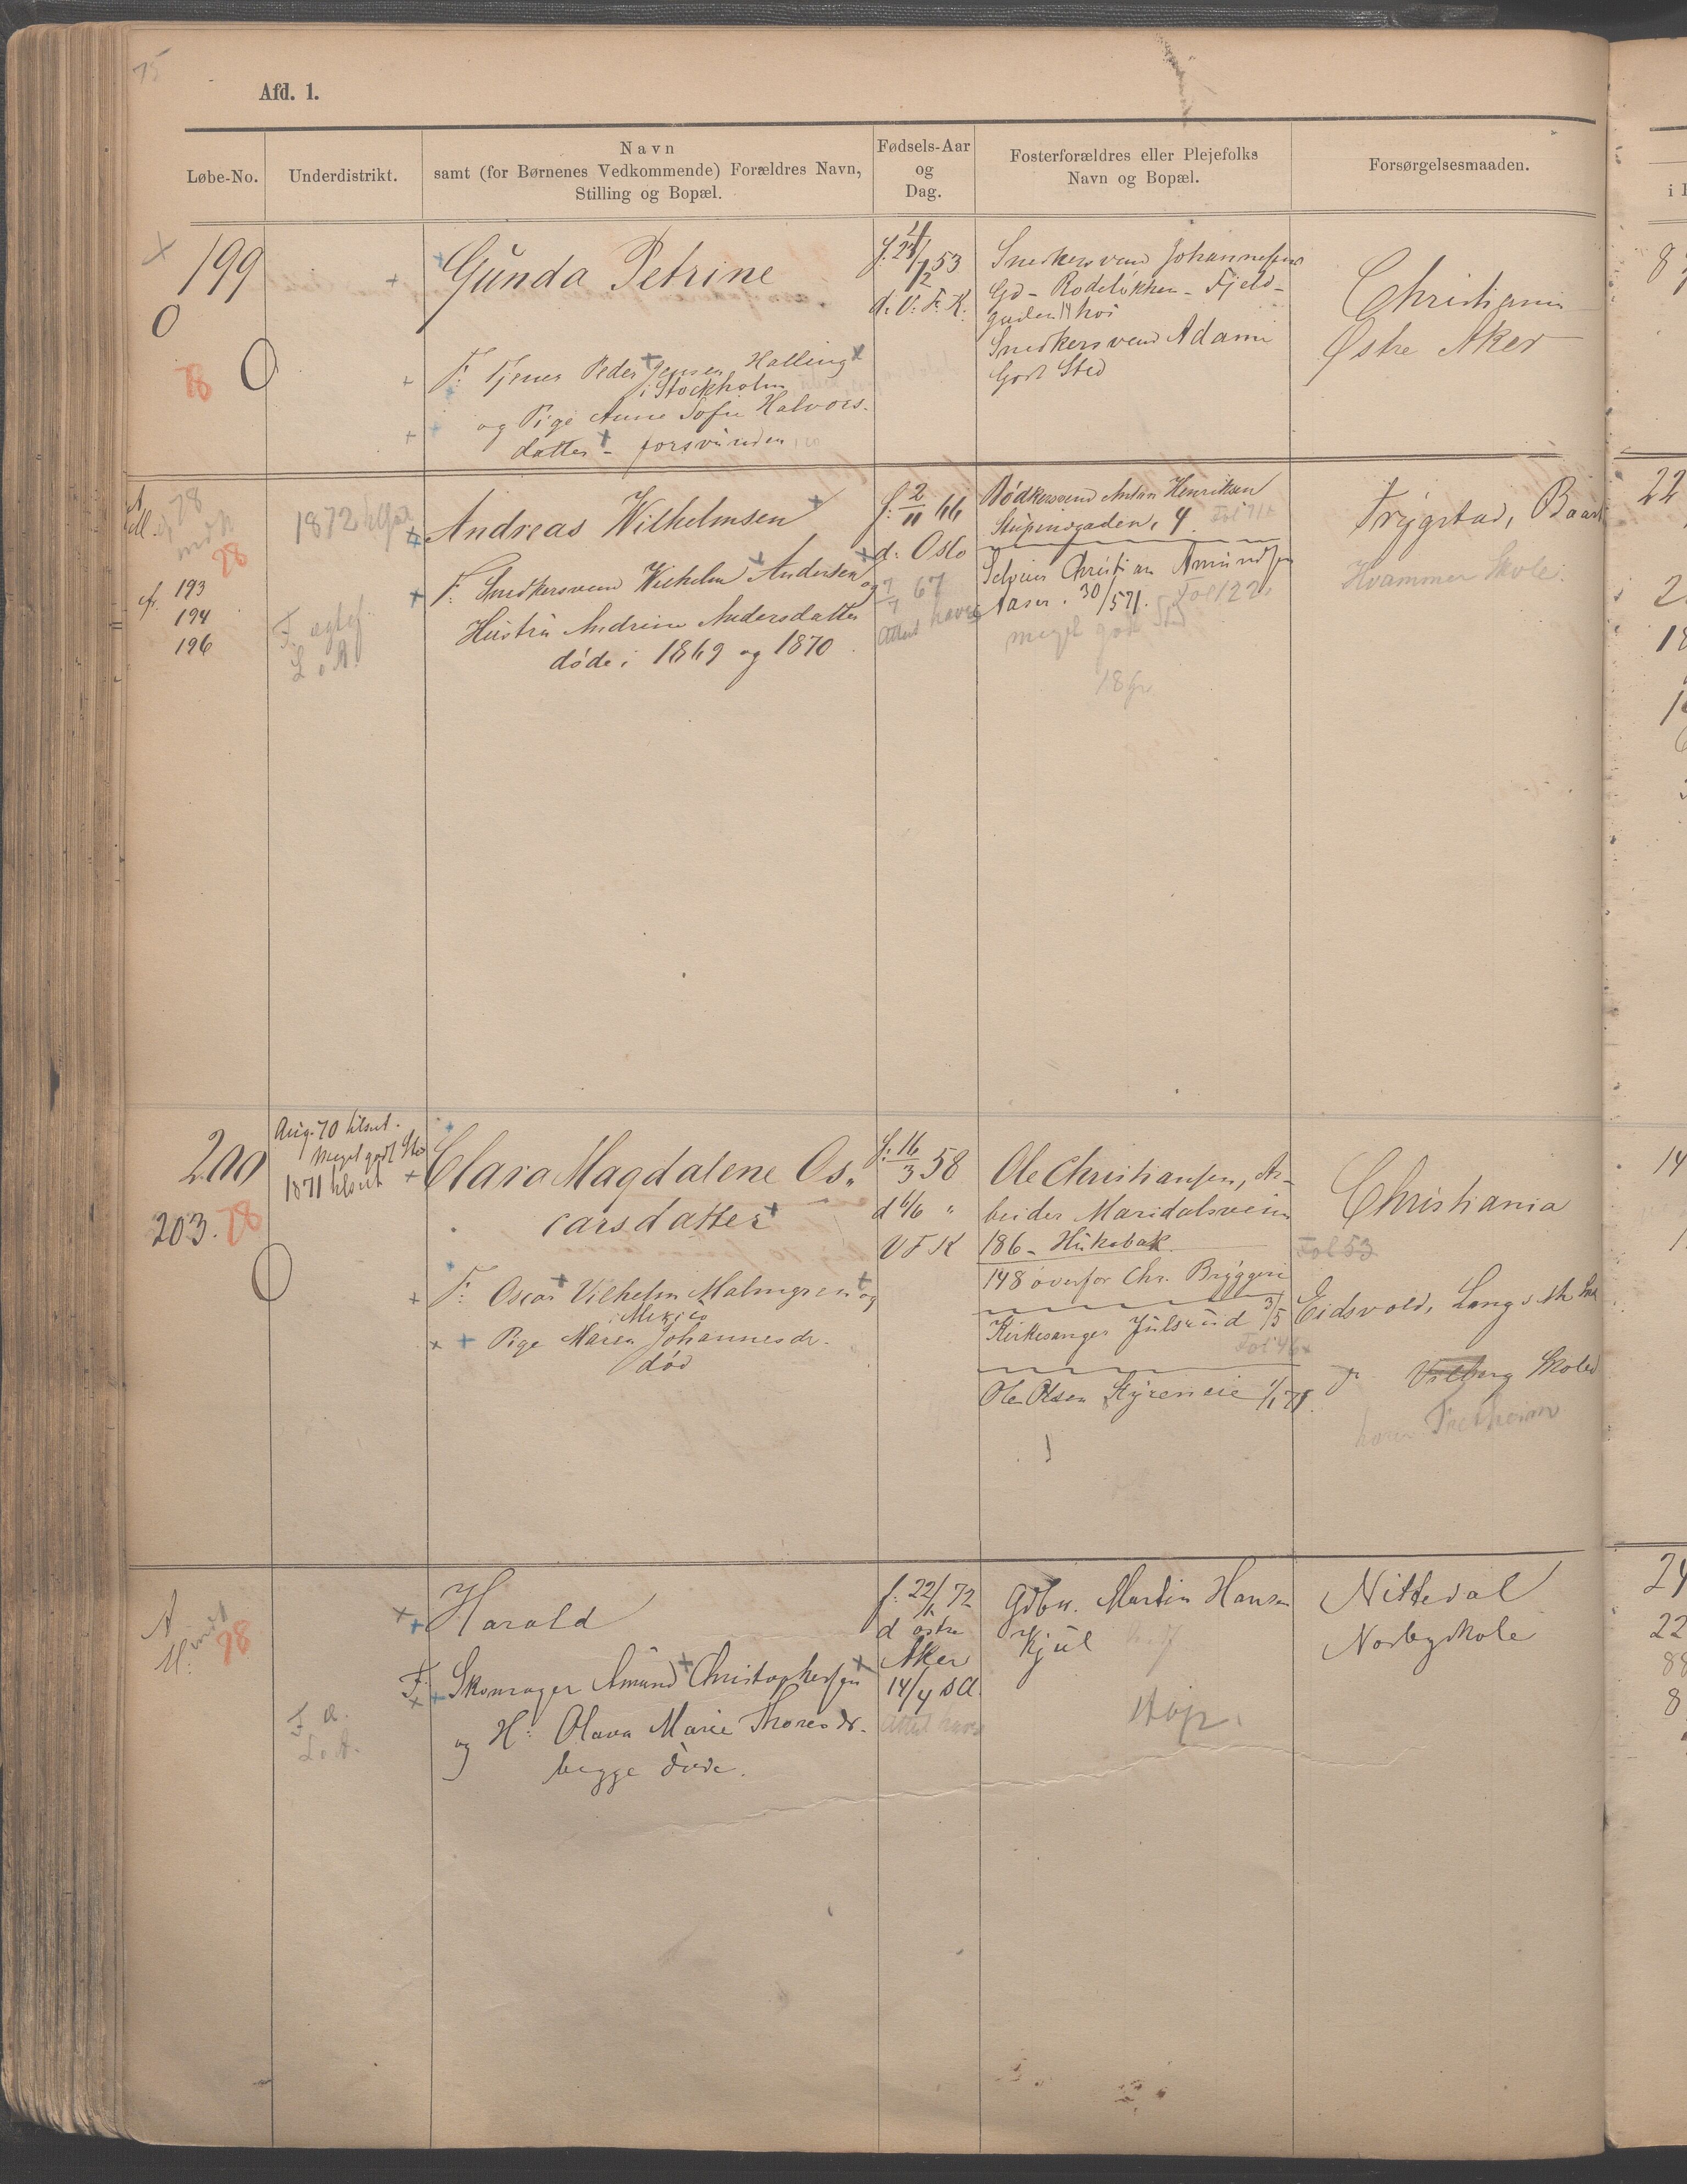 75
Afd. 1.
Løbe-No.
Underdistrikt.
Navn
samt (for Børnenes Vedkommende) Forældres Navn,
Stilling og Bopæl.
Fødsels-Aar
og
Dag.
Fosterforældres eller Plejefolks
Navn og Bopæl.
Forsørgelsesmaaden.
199
0
78
Gunda Petrine
F: Tjener Peder Jensen Halling
i Stockholm
og Pige Anne Sofie Halvors-
datter - forsvunden
53
d. V. F. K.
Snedkersvend Johannesen
Gd - Rodeløkken - Fjeld-
gaden 14 hos
Snedkersvend Adami
Godt Sted
Christiania
Østre Aker
78
28
cfr. 193
194
196
1872
F. ægtef.
L. A.
Andreas Wilhelmsen
F: Snedkersvend Wilhelm Andersen og
Hustru Andrine Andersdatter
døde i 1869 og 1870
f: 2/11 66
d: Oslo
7/7 67
Attest haves
Bødkersvend Anton Henriksen
Stupinsgaden, 4
Selveier Christian Amundsen
Aaser. 30/5 71. Fol 122
meget godt Sted
18
Trygstad, Baast
Hvammer Skole
200
203. 78
Aug. 70 tilset.
Meget godt Sted
1871 tilset
Clara Magdalene Os-
carsdatter
F: Oscar Vilhelm Malmgren og
i Mexico
Pige Maren Johannesdr.
død
f: 16/3 58
d 6/6 "
V F K
Ole Christiansen, Ar-
beider Maridalsveien
186 - Hukabak
148 overfor Chr. Bryggeri
Kirkesanger Julsrud 3/5
Fol 46
Ole Olsen Styreneie 1/1 71.
Christiania
Fol 53
Eidsvold, Langs
Vilberg Skoled
A
M:
78
F. a.
L. A.
Harald
F: Skomager Amund Christophersen
og H: Olava Marie Thoresdr.
begge døde.
72
d østre
Aker
14/4 s A.
Attest haves
Gdbr. Martin Hansen
Kjul
Nittedal
Norbyskole